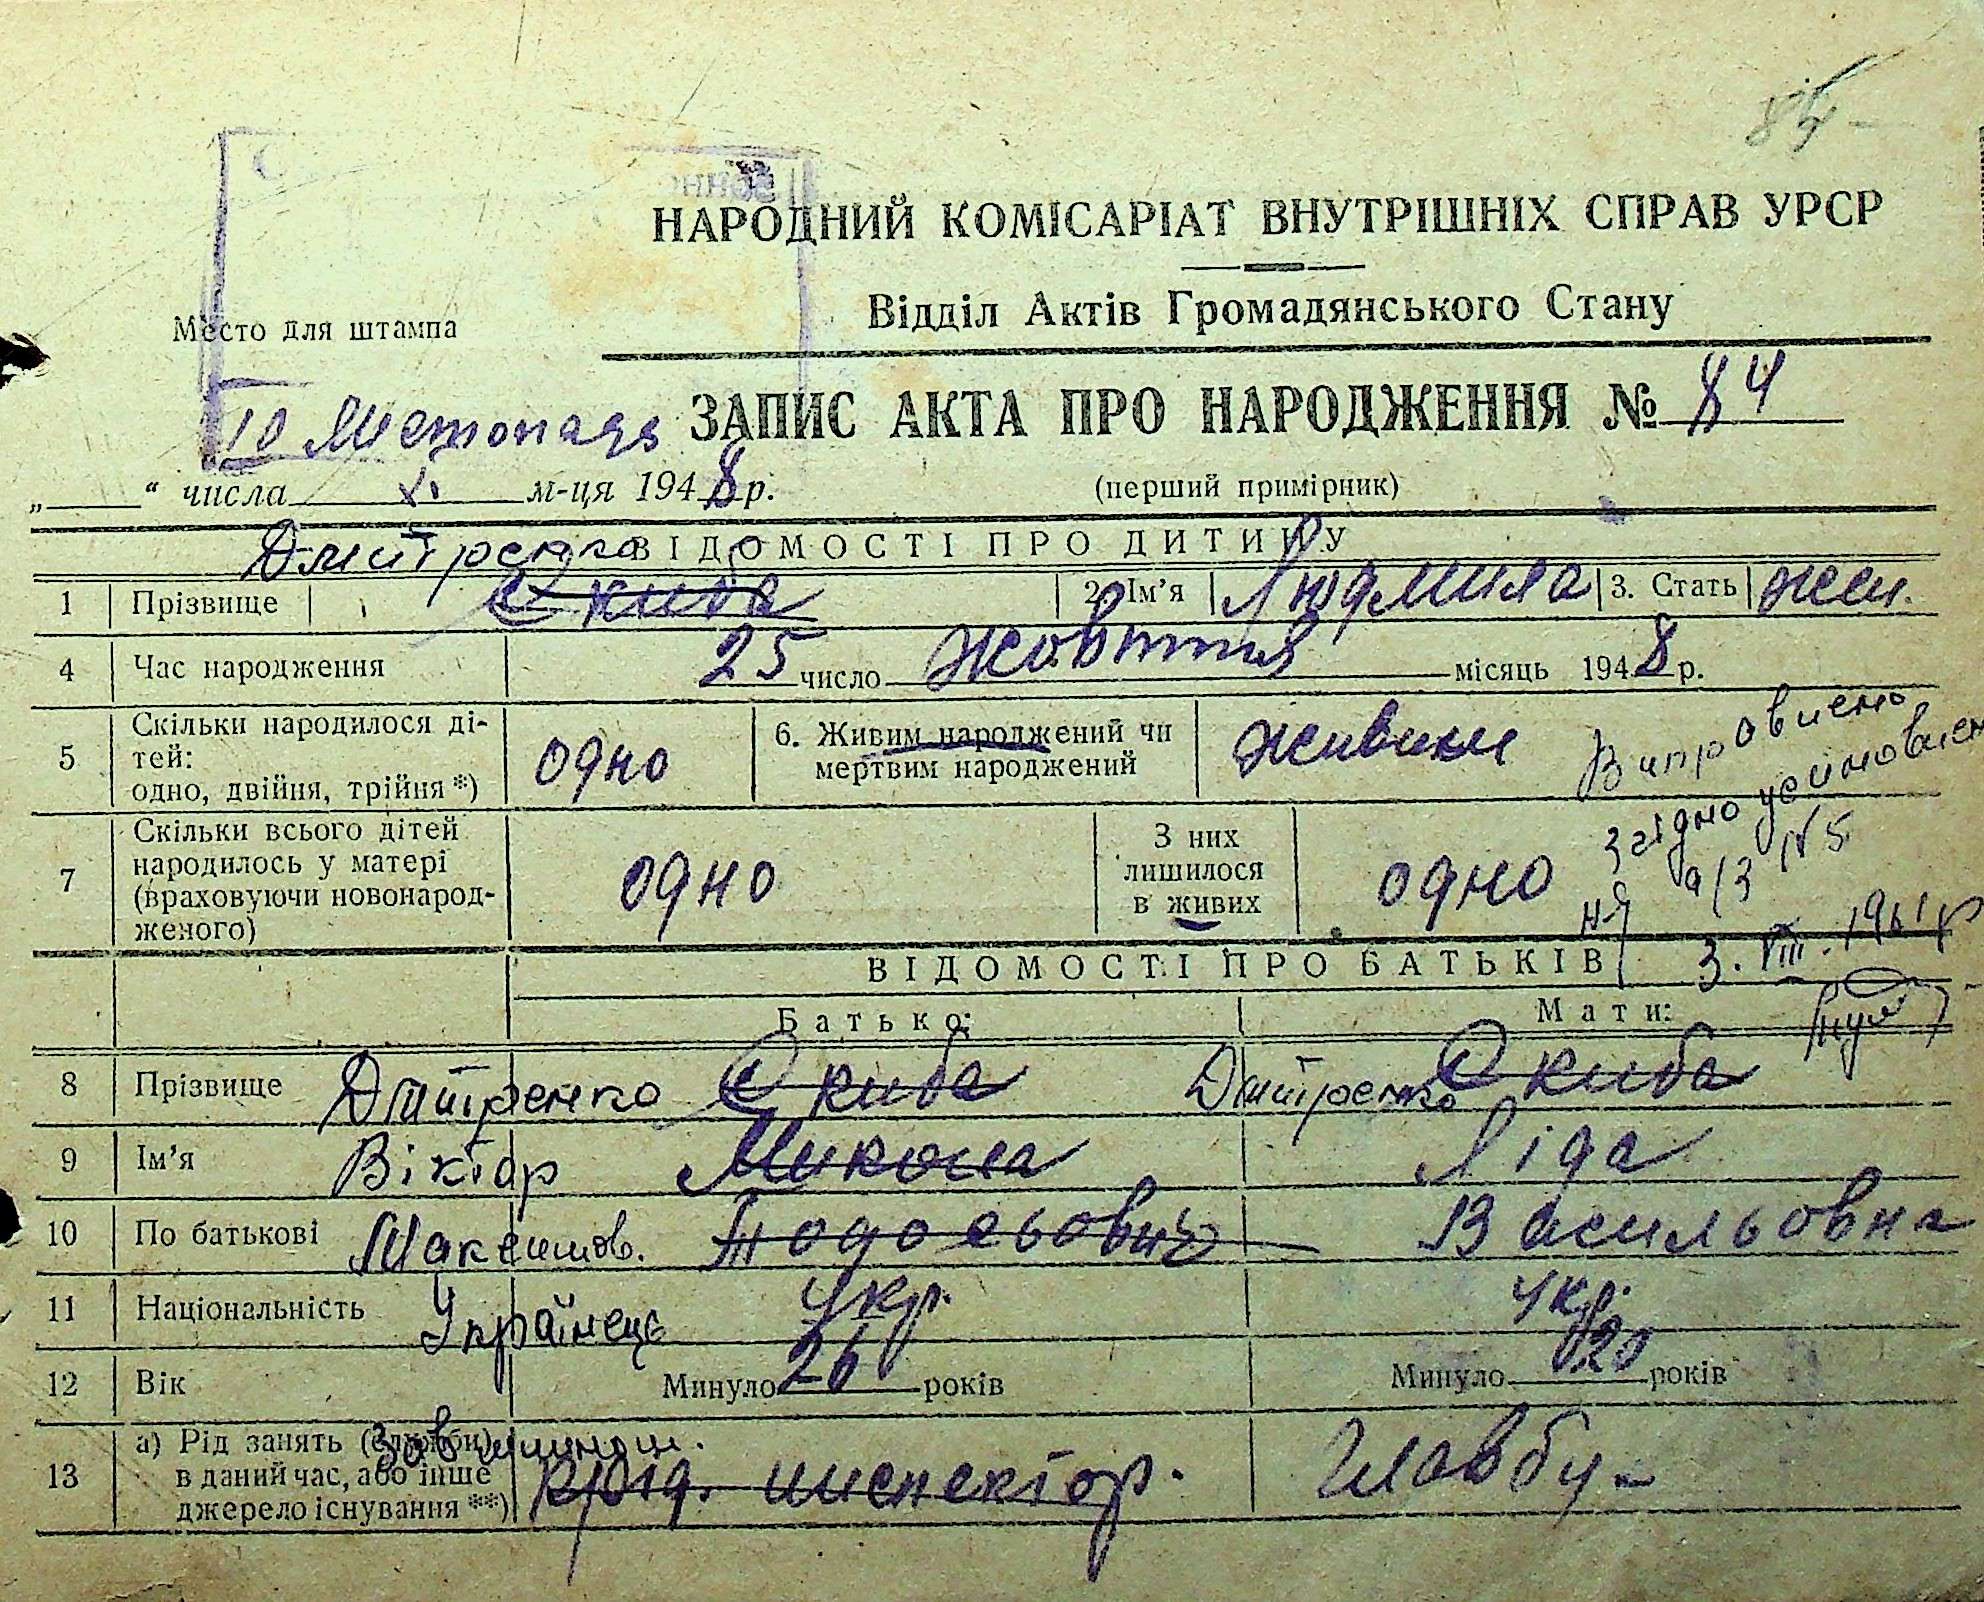 84
НАРОДНИЙ КОМІСАРІАТ ВНУТРІШНІХ СПРАВ УРСР
Відділ Актів Громадянського Стану
Место для штампа
ЗАПИС АКТА ПРО НАРОДЖЕННЯ № 84
10 Листопада
„ “ числа XI м-ця 1948 р. (перший примірник)
ВІДОМОСТІ ПРО ДИТИНУ
Дмитренко
1 Прізвище Скиба 2. Ім’я Людмила 3. Стать жін.
4 Час народження 25 число жовтня місяць 1948 р.
5 Скільки народилося ді-
тей:
одно, двійня, трійня *) одно 6. Живим народжений чи
мертвим народжений живим
Виправлено
згідно усиновлен
ня а/з №5
3. VIII. 1961 р
7 Скільки всього дітей
народилось у матері
(враховуючи новонарод-
женого) одно З них
лишилося
в живих одно
ВІДОМОСТІ ПРО БАТЬКІВ
Батько: Мати:
8 Прізвище Дмитренко Скиба Дмитренко Скиба
9 Ім’я Віктор Микола Ліда
10 По батькові Максимов. Тодосьович Васильовна
11 Національність Українець Укр. Укр.
12 Вік Минуло 26 років Минуло 20 років
13 а) Рід занять (служби)
в даний час, або інше
джерело існування **) инспектор. Главбу